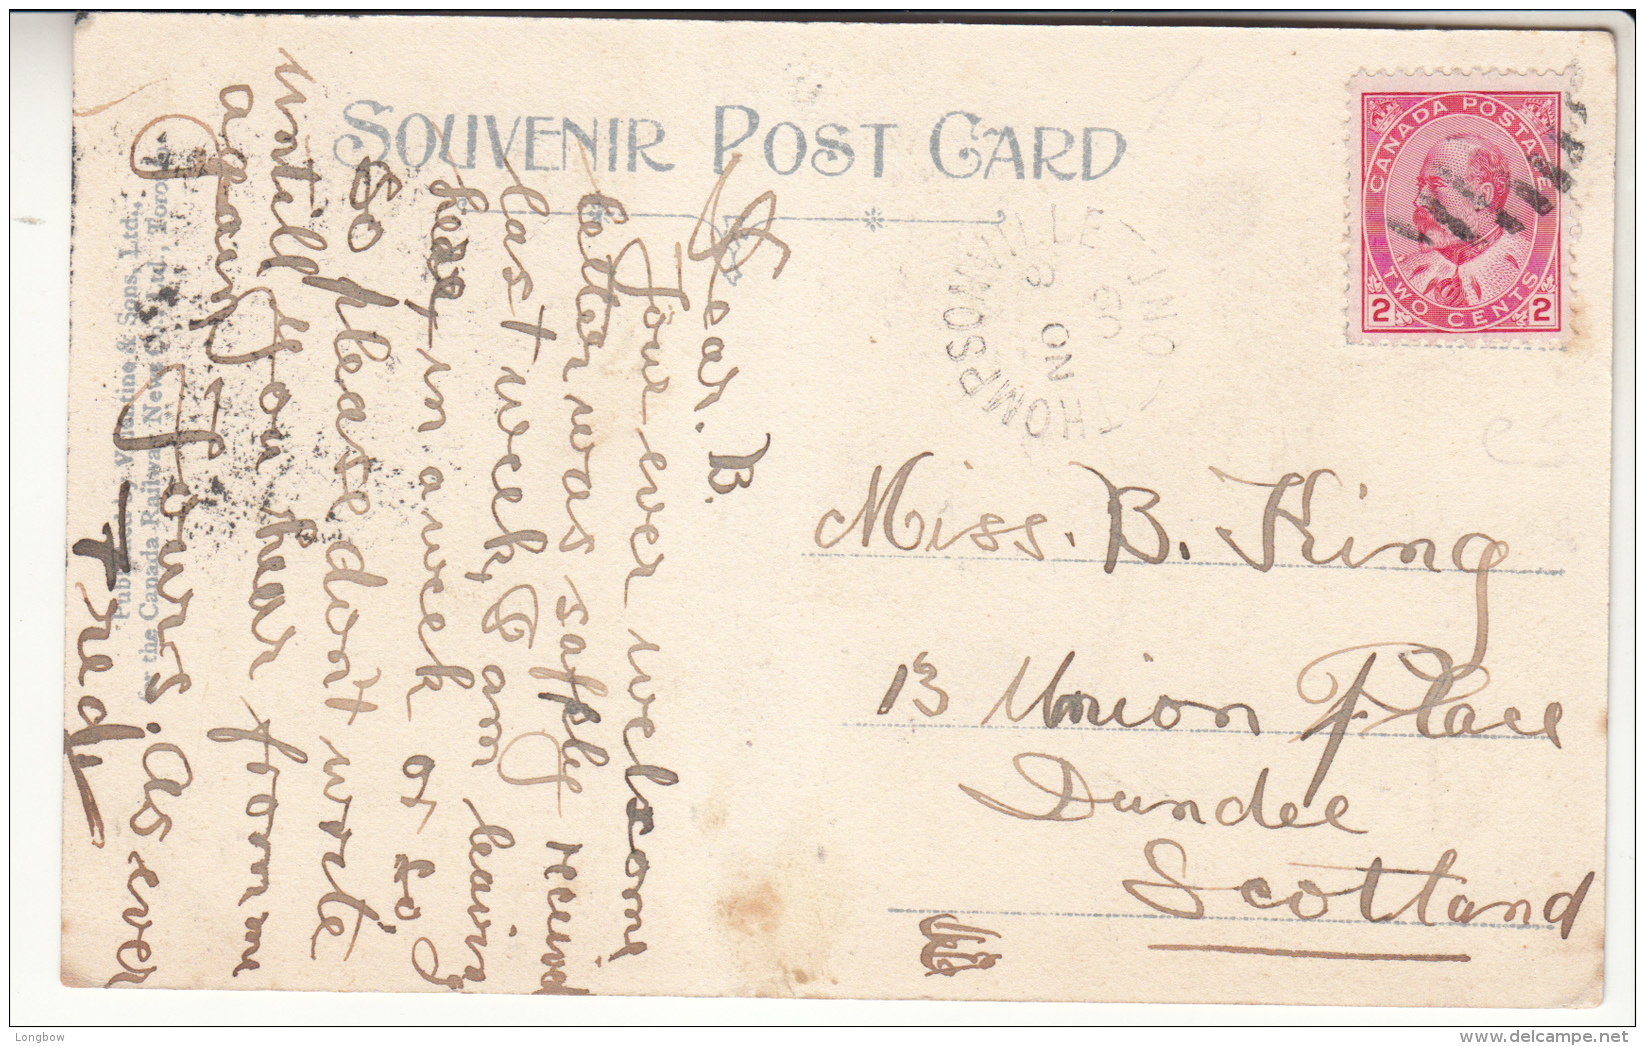 SOUVENIR POST CARD
CANADA POSTAGE
2 TWO CENTS 2
THOMPSONVILLE ONT
NO 8
09
Dear. B.
Your ever welcome
letter was safley received
last week, & am leaving
here in a week or so,
So please don't write
untill you hear from me
again,
Yours. As ever
Fred.
Miss. B. King
13 Union Place
Dundee
Scotland
Published by Valentine & Sons, Ltd.,
for the Canada Railway News Co., Ltd., Toronto.
Longbow
delcampe.net